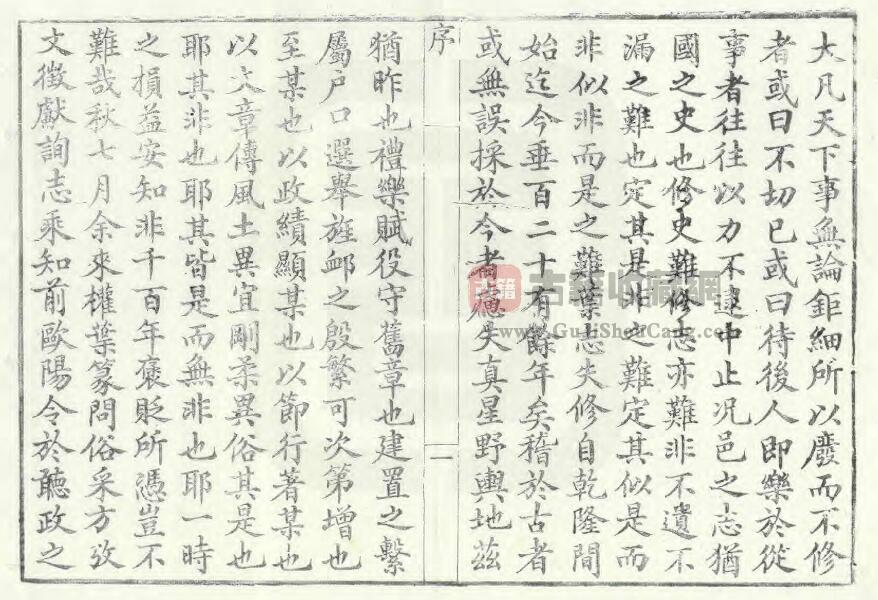 大凡天下事無論鉅細所以廢而不修
者或曰不切已或曰待後人即樂於從
事者往往以力不逮中止况邑之志猶
國之史也修史難修志亦難非不遺不
漏之難也定其是非之難定其似是而
非似非而是之難葉志失修自乾隆間
始迄今垂百二十有餘年矣稽於古者
或無誤採於今者德失真星野輿地茲
序
一
猶昨也禮樂賦役守舊章也建置之繫
屬戶口選舉旌卹之殷繁可次第增也
至某也以政績顯某也以節行著某也
以文章傳風土異宜剛柔異俗其是也
耶其非也耶其皆是而無非也耶一時
之損益安知非千百年褒貶所憑豈不
難哉秋七月余來權葉篆問俗采方攷
文徵獻詢志乘知前歐陽令於聽政之
古籍
古籍收藏網
www.GuJiShouCang.com